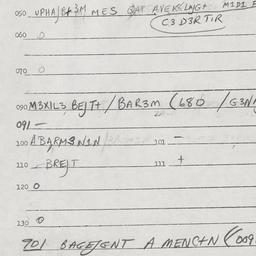 MIDI
050 UPHA/B+3M MES QAT
C3D3R TIR
060 O
070 O
090 M3XIL3 BEJT+ / BAR3M (680 / G3N
091 —
100 ABARM3N1N 101 —
110 — BREJT 111 +
120 O
130 O
701 BAGEJENT A MENC+N (009